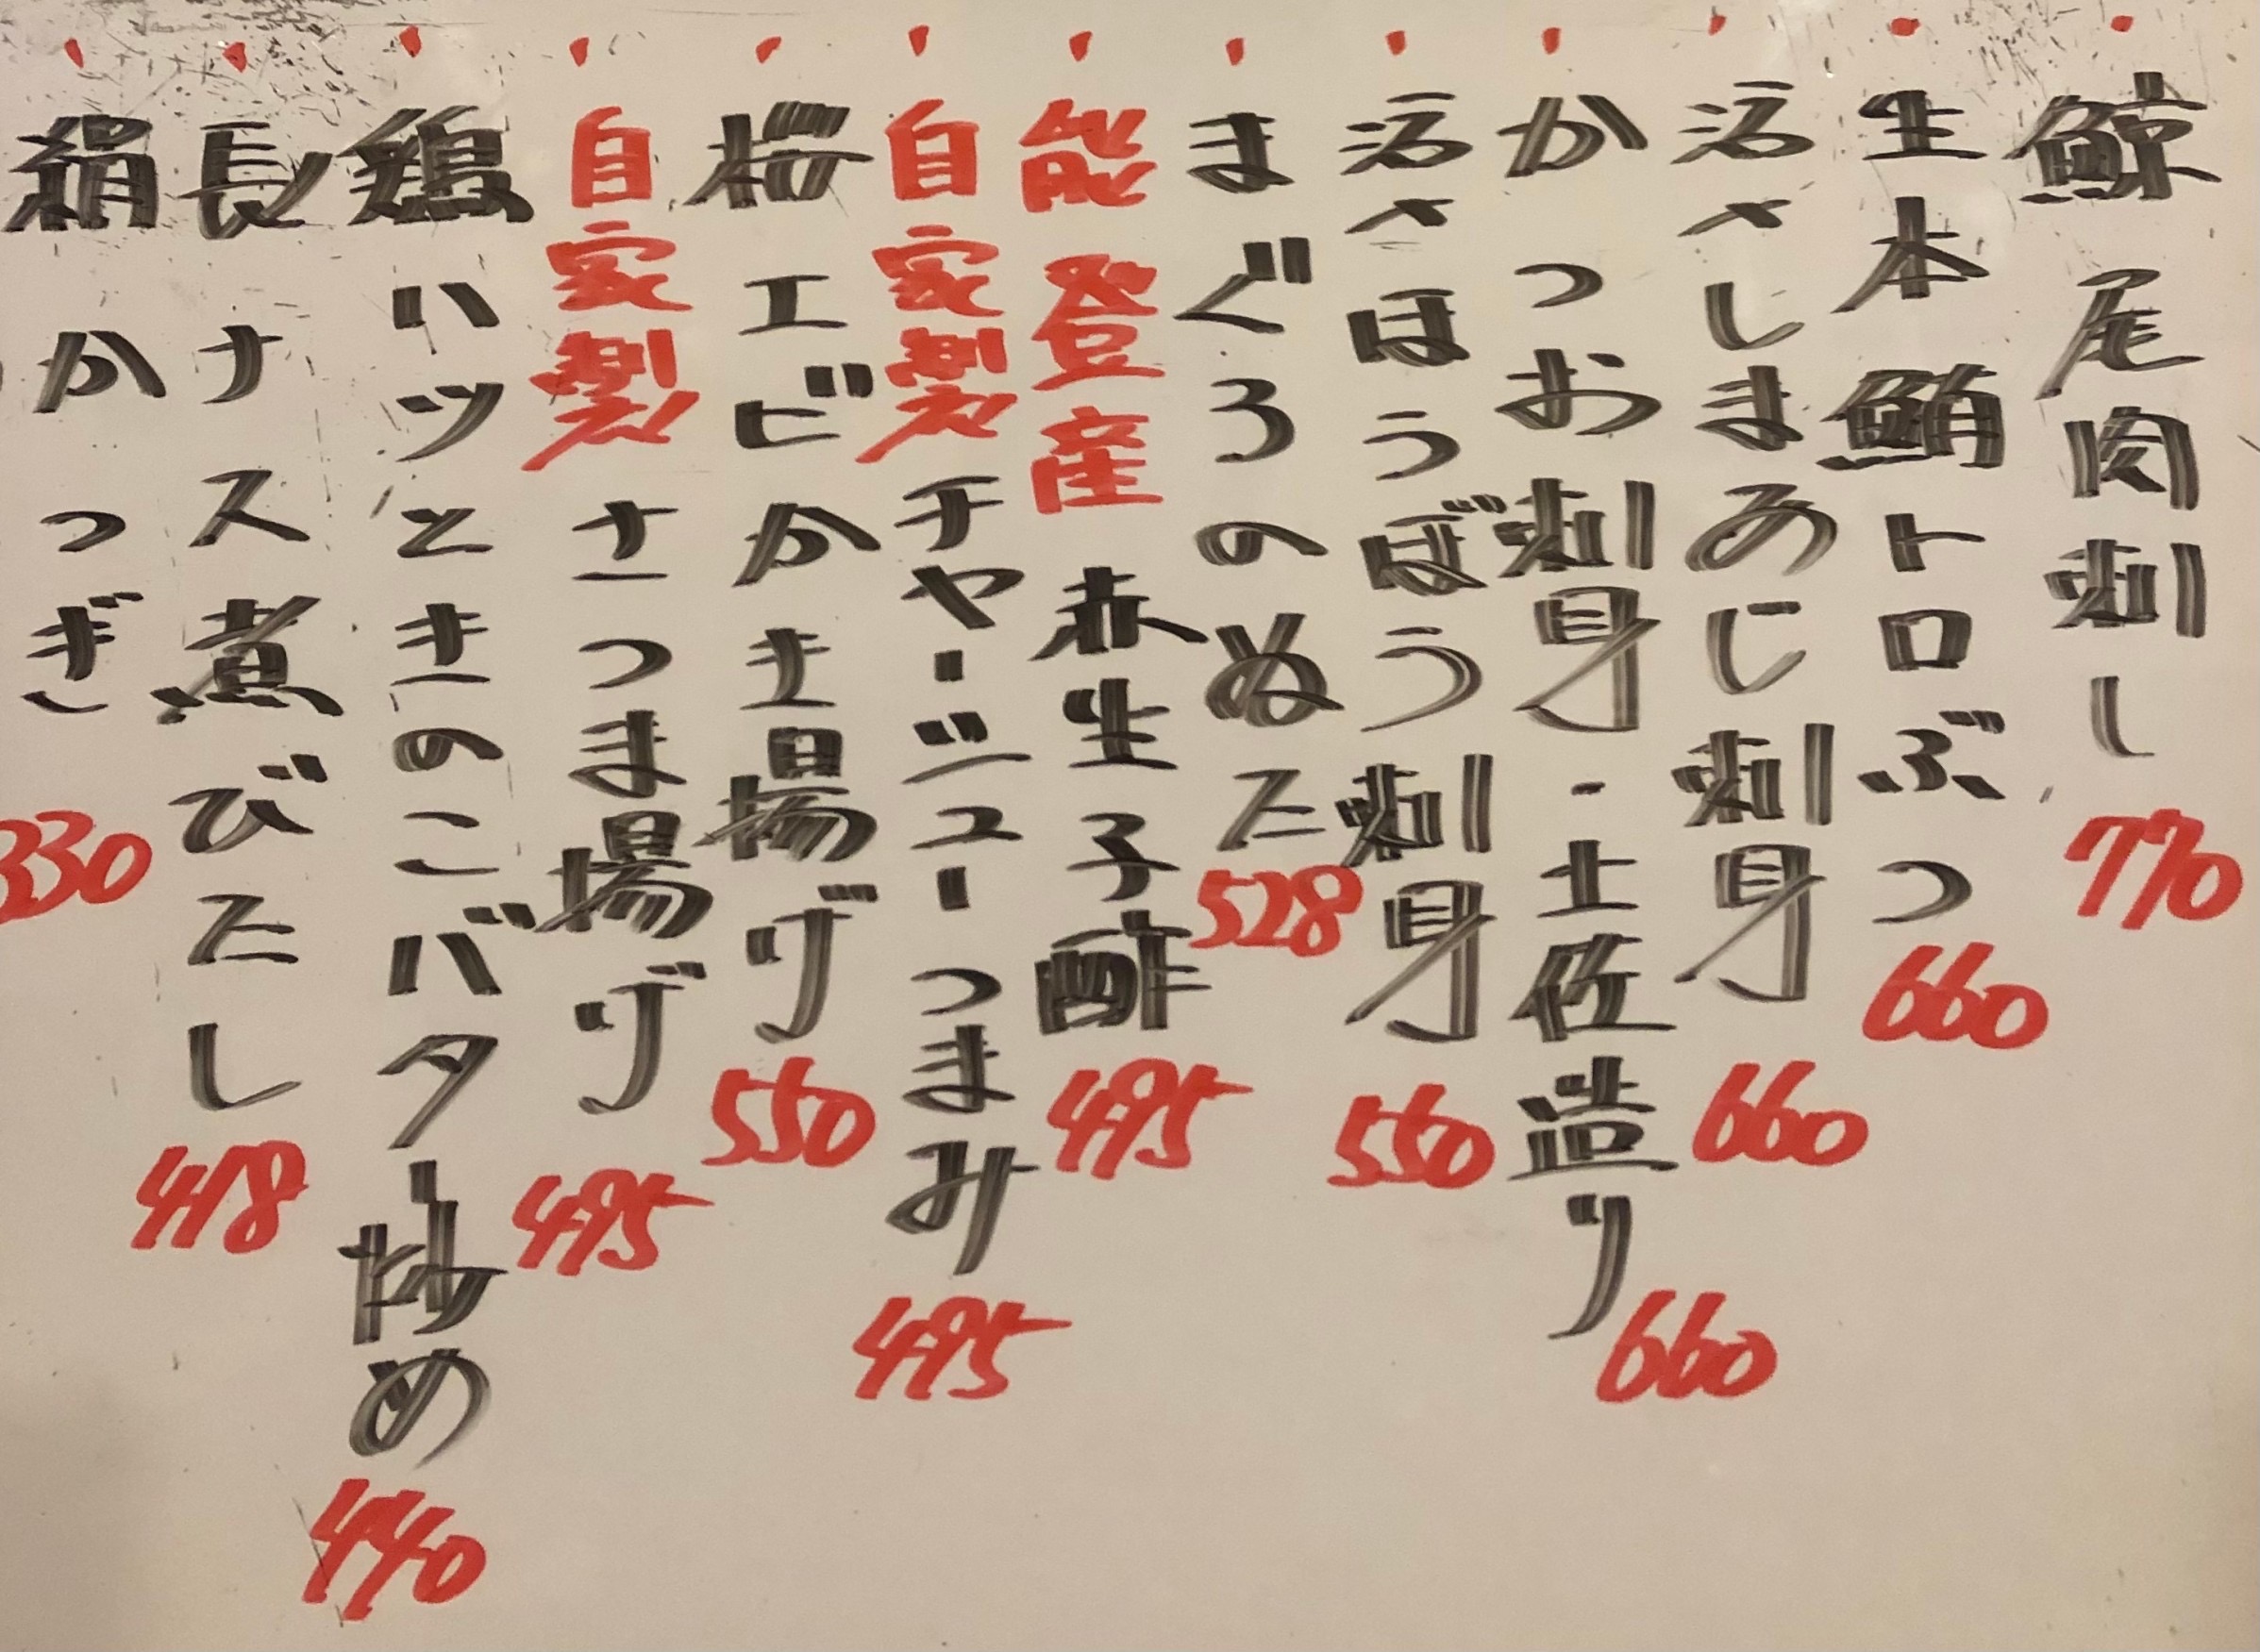 鯨尾肉刺し 770
生本鮪トロぶつ 660
活〆しまあじ刺身 660
かつお刺身・土佐造り 660
活〆ほうぼう刺身 550
まぐろのぬた 528
能登産 赤生子酢 495
自家製チャーシューつまみ 495
桜エビかき揚げ 550
自家製さつま揚げ 495
鶏ハツときのこバター炒め 440
長ナス煮びたし 418
絹かつぎ 330